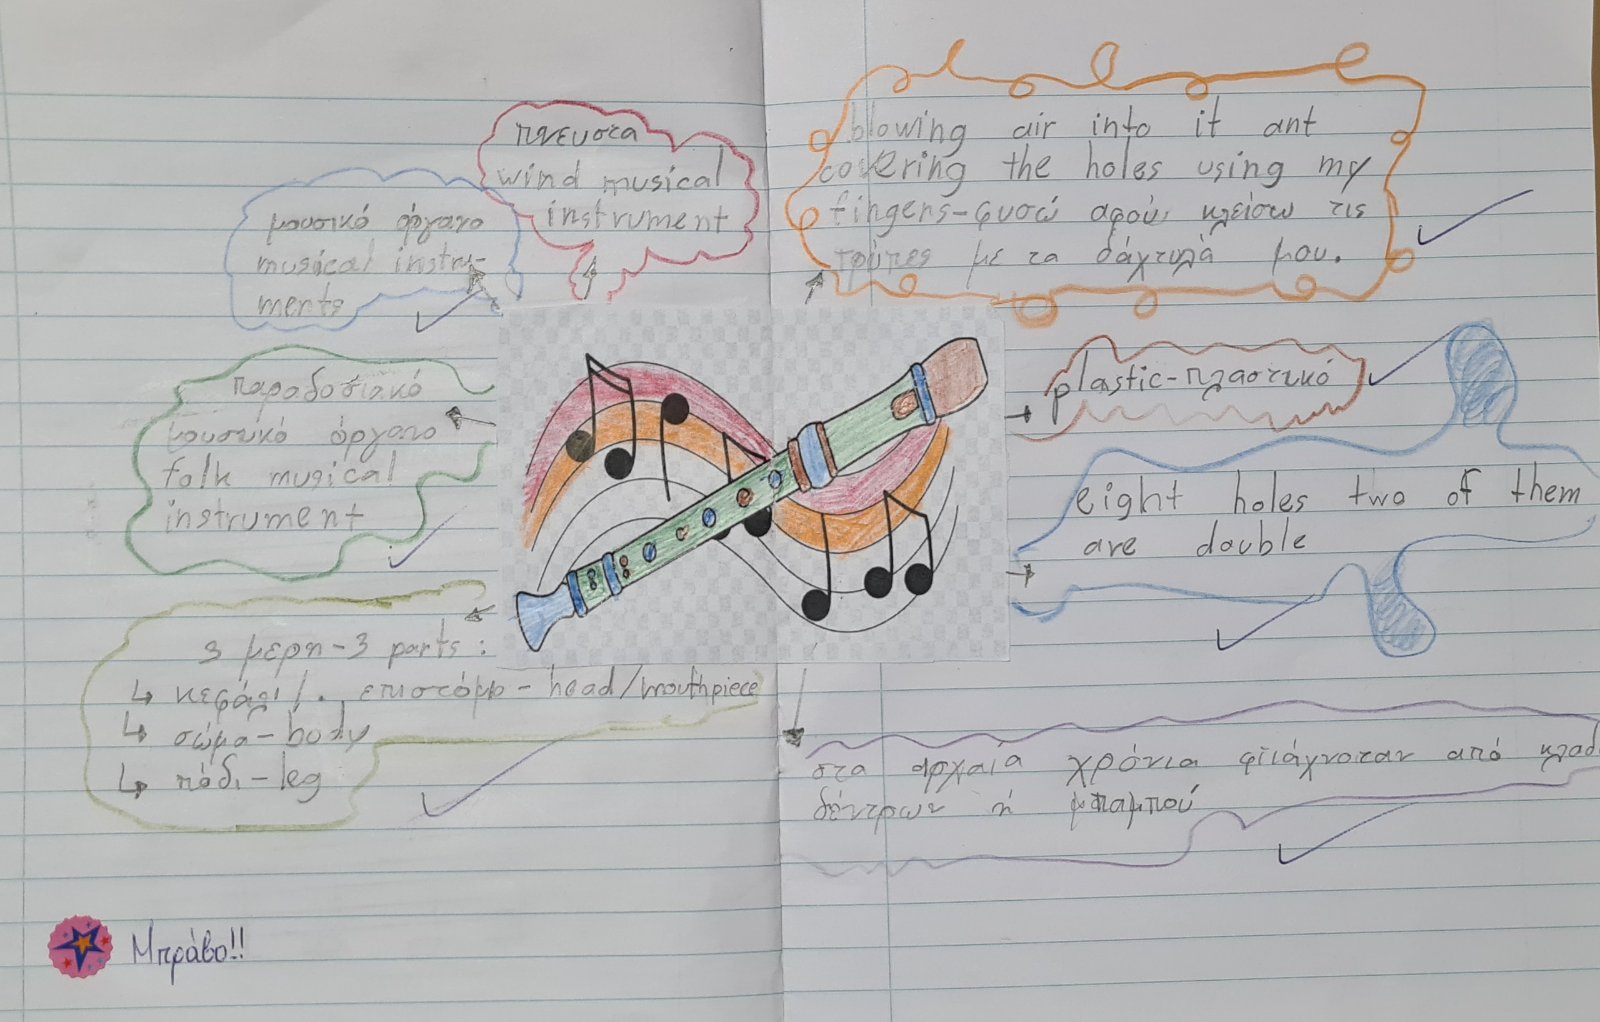 πνευστα
wind musical
instrument
μουσικό όργανο
musical instru-
ments
blowing air into it ant
covering the holes using my
fingers-φυσώ αφού κλείσω τις
τρύπες με τα δάχτυλά μου.
παραδοσιακό
μουσικό όργανο
folk musical
instrument
plastic-πλαστικό
eight holes two of them
are double
3 μερη-3 parts:
↳ κεφάλι/. επιστόμιο-head/mouthpiece
↳ σώμα-body
↳ πόδι-leg
στα αρχαία χρόνια φτιάχνοταν από κλαδ
δέντρων ή μπαμπού
Μπράβο!!